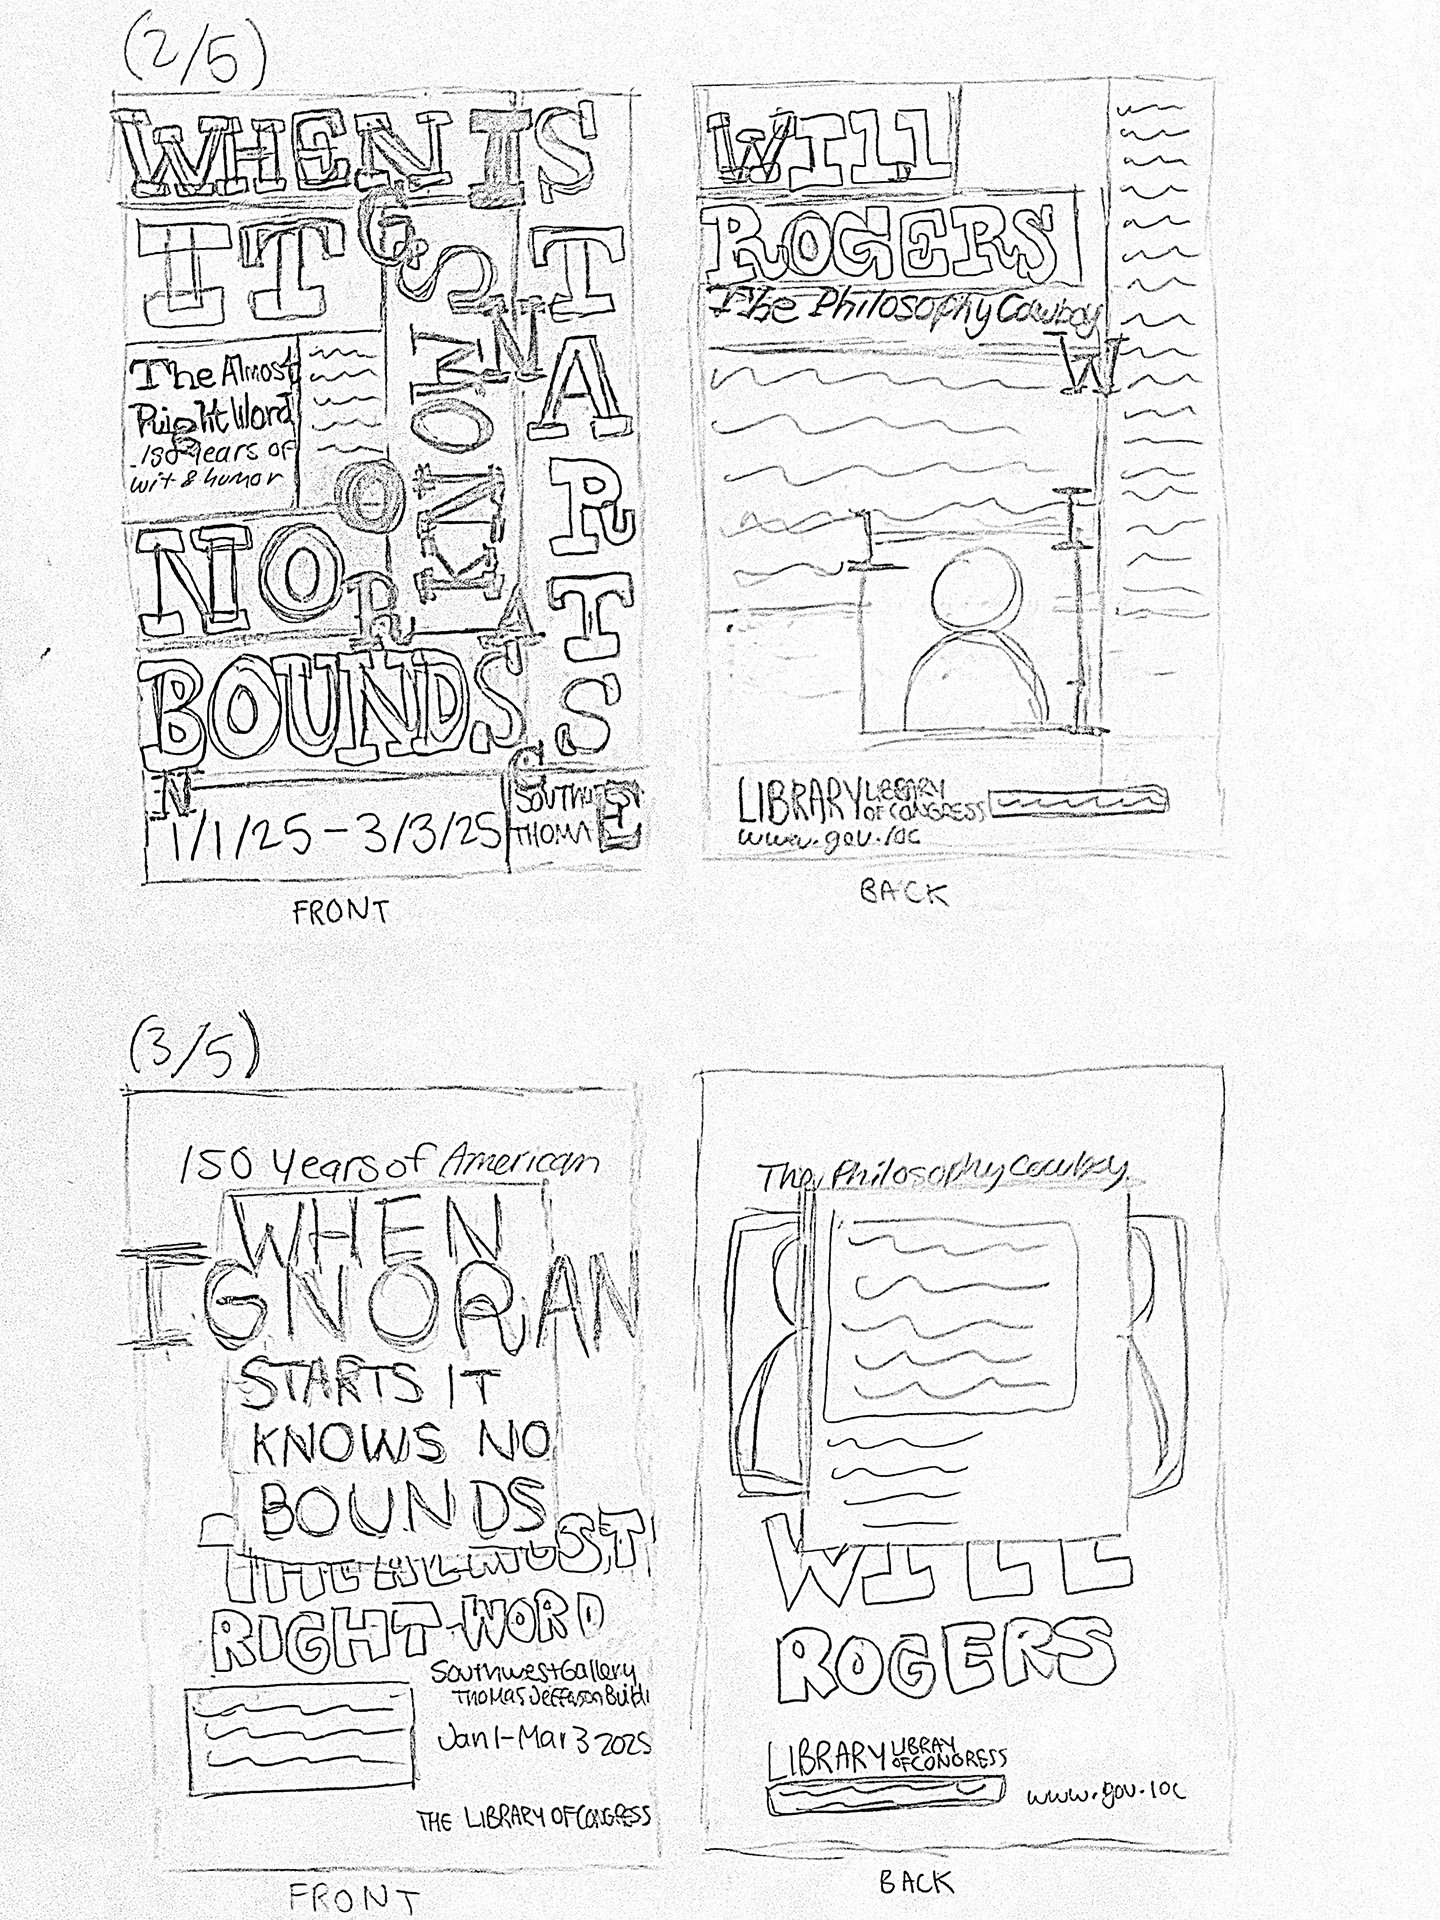 (2/5)
WHEN IS
IT
STARTS
KNOWS
IGNORANCE
The Almost
Right Word
150 Years of
wit & humor
NO
BOUNDS
1/1/25 - 3/3/25
SOUTHWEST
THOMA
FRONT
WILL
ROGERS
The Philosophy Cowboy
W
I
LIBRARY LIBRARY
OF CONGRESS
www.gov.loc
BACK
(3/5)
150 Years of American
WHEN
IGNORAN
STARTS IT
KNOWS NO
BOUNDS
THE ALMOST
RIGHT WORD
Southwest Gallery
Thomas Jefferson Buildi
Jan 1-Mar 3 2025
THE LIBRARY OF CONGRESS
FRONT
The Philosophy Cowboy
WILL
ROGERS
LIBRARY LIBRAY
OF CONGRESS
www.gov.loc
BACK